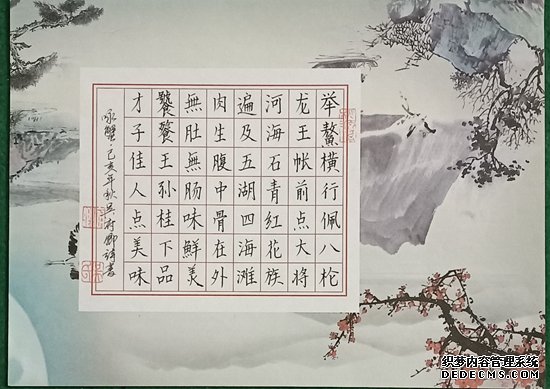 举螯横行佩八枪
龙王帐前点大将
河海石青红花族
遍及五湖四海滩
肉生腹中骨在外
無肚無肠味鮮美
饕餮王孙桂下品
才子佳人点美味
咏蟹·己亥年秋
织梦内容管理系统
DEDECMS.COM